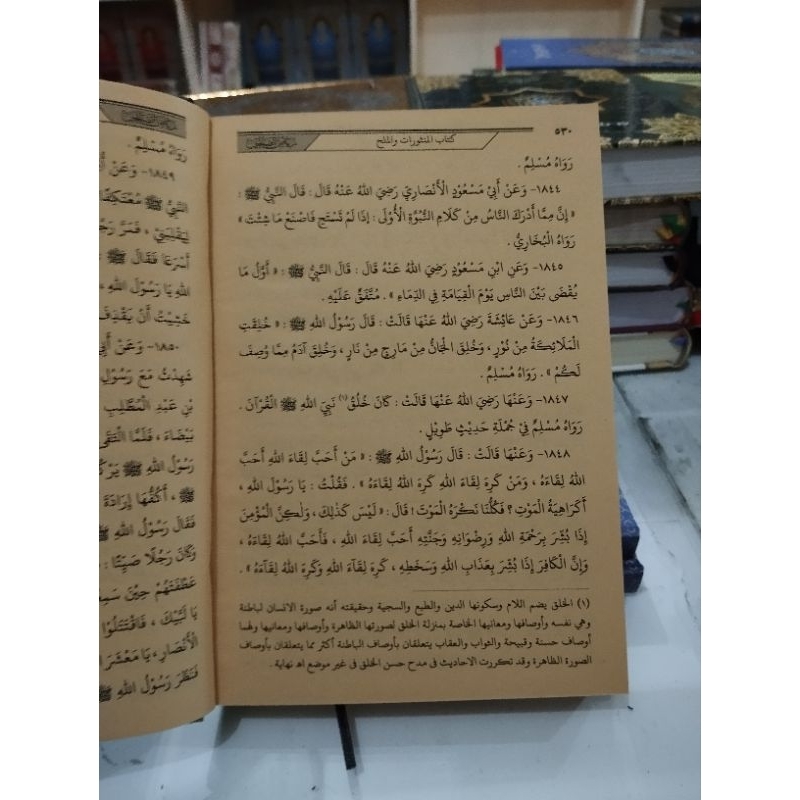 ٥٣٠
كتاب المنثورات والملح
رَوَاهُ مُسْلِمٌ .
١٨٤٤- وَعَنْ أَبِيْ مَسْعُودٍ الْأَنْصَارِيِّ رَضِيَ اللهُ عَنْهُ قَالَ : قَالَ النَّبِيُّ ﷺ :
« إِنَّ مِمَّا أَدْرَكَ النَّاسُ مِنْ كَلَامِ النُّبُوَّةِ الْأُوْلَى : إِذَا لَمْ تَسْتَحِ فَاصْنَعْ مَا شِئْتَ »
رَوَاهُ الْبُخَارِيُّ .
١٨٤٥- وَعَنِ ابْنِ مَسْعُودٍ رَضِيَ اللهُ عَنْهُ قَالَ : قَالَ النَّبِيُّ ﷺ : « أَوَّلُ مَا
يُقْضَى بَيْنَ النَّاسِ يَوْمَ الْقِيَامَةِ فِي الدِّمَاءِ » . مُتَّفَقٌ عَلَيْهِ .
١٨٤٦- وَعَنْ عَائِشَةَ رَضِيَ اللهُ عَنْهَا قَالَتْ : قَالَ رَسُوْلُ اللهِ ﷺ : « خُلِقَتِ
الْمَلَائِكَةُ مِنْ نُوْرٍ ، وَخُلِقَ الْجَانُّ مِنْ مَارِجٍ مِنْ نَارٍ ، وَخُلِقَ آدَمُ مِمَّا وُصِفَ
لَكُمْ » . رَوَاهُ مُسْلِمٌ .
١٨٤٧- وَعَنْهَا رَضِيَ اللهُ عَنْهَا قَالَتْ : كَانَ خُلُقُ (١) نَبِيِّ اللهِ ﷺ الْقُرْآنَ .
رَوَاهُ مُسْلِمٌ فِيْ جُمْلَةِ حَدِيْثٍ طَوِيْلٍ .
١٨٤٨- وَعَنْهَا قَالَتْ : قَالَ رَسُوْلُ اللهِ ﷺ : « مَنْ أَحَبَّ لِقَاءَ اللهِ أَحَبَّ
اللهُ لِقَاءَهُ ، وَمَنْ كَرِهَ لِقَاءَ اللهِ كَرِهَ اللهُ لِقَاءَهُ » . فَقُلْتُ : يَا رَسُوْلَ اللهِ ،
أَكَرَاهِيَةُ الْمَوْتِ ؟ فَكُلُّنَا نَكْرَهُ الْمَوْتَ ! قَالَ : « لَيْسَ كَذٰلِكَ ، وَلٰكِنَّ الْمُؤْمِنَ
إِذَا بُشِّرَ بِرَحْمَةِ اللهِ وَرِضْوَانِهِ وَجَنَّتِهِ أَحَبَّ لِقَاءَ اللهِ ، فَأَحَبَّ اللهُ لِقَاءَهُ ،
وَإِنَّ الْكَافِرَ إِذَا بُشِّرَ بِعَذَابِ اللهِ وَسَخَطِهِ ، كَرِهَ لِقَاءَ اللهِ وَكَرِهَ اللهُ لِقَاءَهُ » .
(١) الخلق بضم اللام وسكونها الدين والطبع والسجية وحقيقته أنه صورة الانسان لباطنة
وهي نفسه وأوصافها ومعانيها الخاصة بمنزلة الخلق لصورتها الظاهرة وأوصافها ومعانيها ولهما
أوصاف حسنة وقبيحة والثواب والعقاب يتعلقان بأوصاف الباطنة أكثر مما يتعلقان بأوصاف
الصورة الظاهرة وقد تكررت الاحاديث في مدح حسن الخلق في غير موضع اهـ نهاية .
رَوَاهُ مُسْلِمٌ .
١٨٤٩- وَعَنْ
النَّبِيُّ ﷺ مُعْتَكِفًا
لِيَقْلِبَنِيْ ، فَمَرَّ
أَسْرَعَا فَقَالَ ﷺ
اللهِ يَا رَسُوْلَ اللهِ
خَشِيْتُ أَنْ يَقْذِفَ
١٨٥٠- وَعَنْ
شَهِدْتُ مَعَ رَسُوْلِ
بْنِ عَبْدِ الْمُطَّلِبِ
بَيْضَاءَ ، فَلَمَّا الْتَقَى
رَسُوْلُ اللهِ ﷺ
ﷺ ، أَكُفُّهَا إِرَادَةَ
فَقَالَ رَسُوْلُ اللهِ
وَكَانَ رَجُلًا صَيِّتًا :
عَطْفَتَهُمْ حِيْنَ
يَا لَبَّيْكَ ، فَاقْتَتَلُوْا
الْأَنْصَارِ ، يَا مَعْشَرَ
فَنَظَرَ رَسُوْلُ اللهِ ﷺ